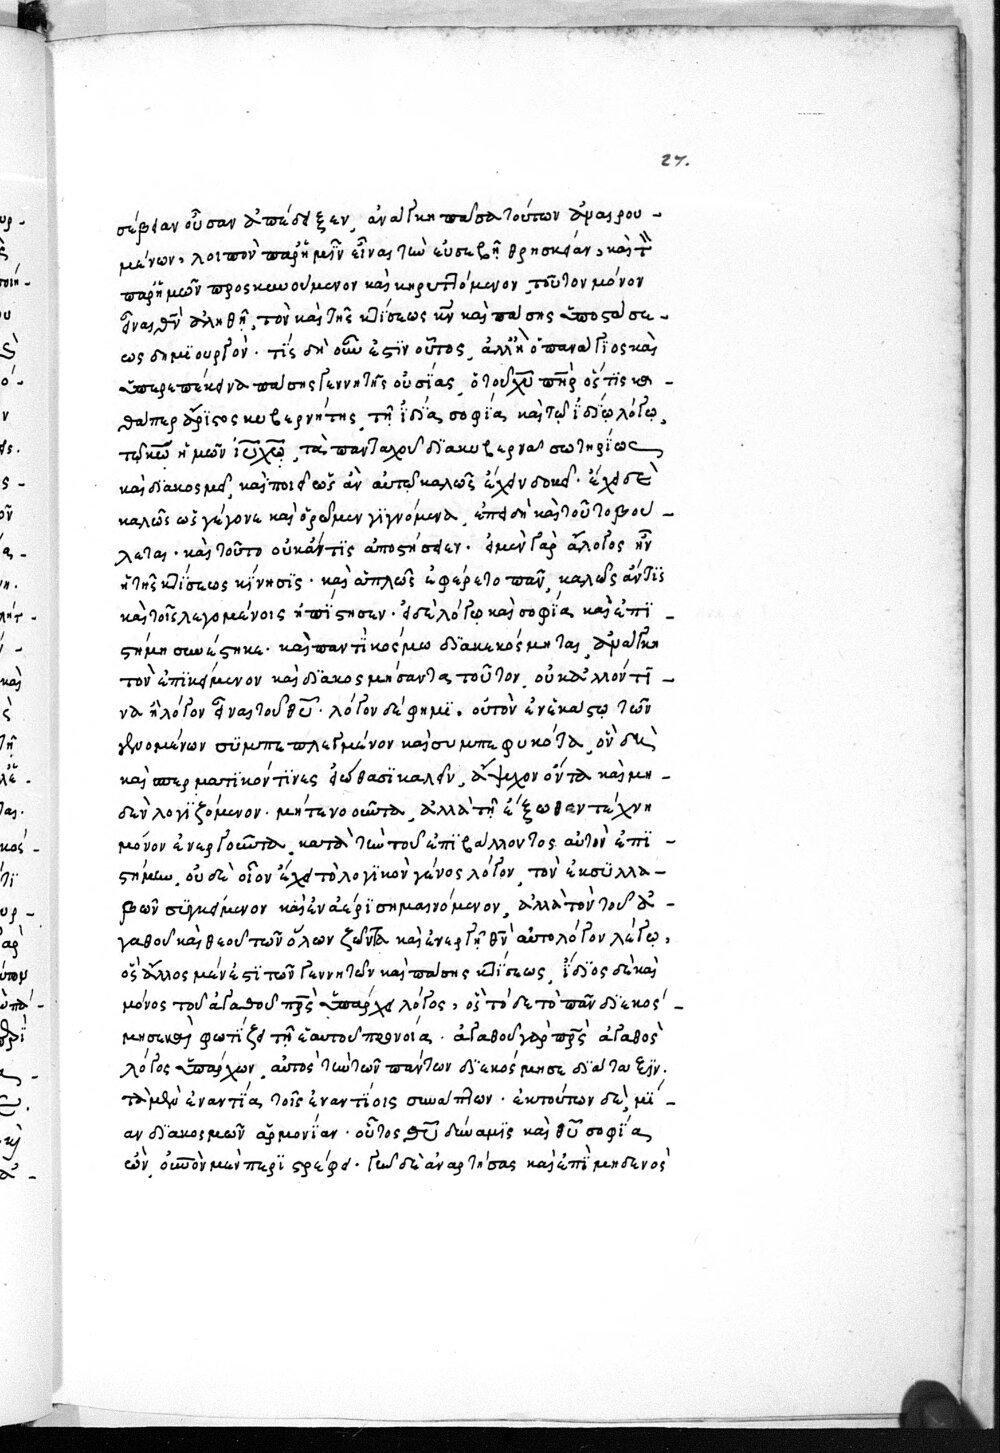 27.
σέβειαν οὖσαν ἀπέδειξεν, ἀνάγκη πᾶσα τούτων ἀναιρου -
μένων, λοιπὸν παρ' ἡμῖν εἶναι τὴν εὐσεβῆ θρησκείαν, καὶ τὸν
παρ' ἡμῶν προσκυνούμενον καὶ κηρυττόμενον, τοῦτον μόνον
εἶναι θν ἀληθῆ, τὸν καὶ τῆς κτίσεως κν καὶ πάσης ὑποστάσε -
ως δημιουργόν. τίς δὴ οὖν ἐστιν οὗτος, ἀλλ' ἢ ὁ πανάγιος καὶ
ὑπερεπέκεινα πάσης γεννητῆς οὐσίας, ὁ τοῦ χυ πηρ ὅστις κα -
θάπερ ἄριστος κυβερνήτης, τῇ ἰδίᾳ σοφίᾳ καὶ τῷ ἰδίῳ λόγῳ,
τῷ κω ἡμῶν ιυ χω, τὰ πανταχοῦ διακυβερνᾷ σωτηρίως
καὶ διακοσμεῖ, καὶ ποιεῖ ὡς ἂν αὐτῷ καλῶς ἔχειν δοκεῖ. ἔχει δὲ
καλῶς ὡς γέγονε καὶ ὁρῶμεν γιγνόμενα, ἐπειδὴ καὶ τοῦτο βού -
λεται. καὶ τοῦτο οὐκ ἄν τις ἀπιστήσειεν. εἰ μὲν γὰρ ἄλογος ἦν
ἡ τῆς κτίσεως κίνησις. καὶ ἁπλῶς ἐφέρετο τὸ πᾶν, καλῶς ἄν τις
καὶ τοῖς λεγομένοις ἠπίστησεν. εἰ δὲ λόγῳ καὶ σοφίᾳ καὶ ἐπι -
στήμῃ συνέστηκε. καὶ παντὶ κόσμῳ διακεκόσμηται, ἀνάγκη
τὸν ἐπικείμενον καὶ διακοσμήσαντα τοῦτον, οὐκ ἄλλον τι -
νὰ ἢ λόγον εἶναι τοῦ θυ. λόγον δέ φημι. οὐ τὸν ἐν ἑκάστῳ τῶν
γενομένων συμπεπλεγμένον καὶ συμπεφυκότα, ὃν δὴ
καὶ σπερματικόν τινες εἰώθασι καλεῖν, ἄψυχον ὄντα καὶ μη -
δὲν λογιζόμενον. μήτε νοοῦντα, ἀλλὰ τῇ ἔξωθεν τέχνῃ
μόνον ἐνεργοῦντα, κατὰ τὴν τοῦ ἐπιβάλλοντος αὐτὸν ἐπι -
στήμην, οὐδὲ οἷον ἔχει τὸ λογικὸν γένος λόγον, τὸν ἐκ συλλα -
βῶν συγκείμενον καὶ ἐν ἀέρι σημαινόμενον, ἀλλὰ τὸν τοῦ ἀ -
γαθοῦ καὶ θεοῦ τῶν ὅλων ζῶντα καὶ ἐνεργῆ θν αὐτολόγον λέγω,
ὃς ἄλλος μὲν ἐστὶ τῶν γεννητῶν καὶ πάσης κτίσεως, ἴδιος δὲ καὶ
μόνος τοῦ ἀγαθοῦ πρς ὑπάρχει λόγος, ὃς τόδε τὸ πᾶν διεκόσ -
μησε καὶ φωτίζει τῇ ἑαυτοῦ προνοίᾳ. ἀγαθοῦ γὰρ πρς ἀγαθὸς
λόγος ὑπάρχων, αὐτὸς τὴν τῶν πάντων διεκόσμησε διάταξιν.
τὰ μὲν ἐναντία τοῖς ἐναντίοις συνάπτων. ἐκ τούτων δὲ, μί -
αν διακοσμῶν ἁρμονίαν. οὗτος θυ δύναμις καὶ θυ σοφία
ὢν, οὐρανὸν μὲν περιστρέφει. γῆν δὲ ἀναρτήσας καὶ ἐπὶ μηδενὸς